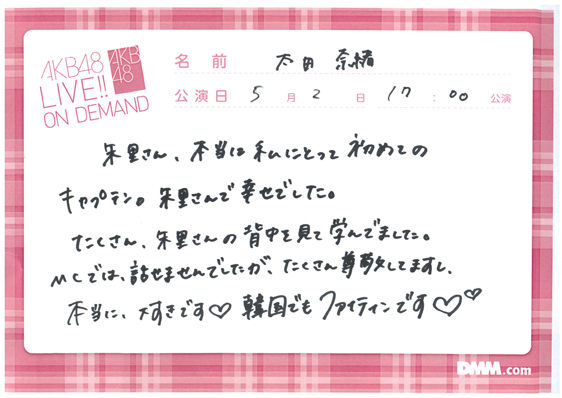 AKB48
LIVE!!
ON DEMAND
AKB
48
名前 太田 奈緒
公演日 5月2日 17:00 公演
朱里さん、本当は私にとって初めての
キャプテン。朱里さんで幸せでした。
たくさん、朱里さんの背中を見て学んでました。
MCでは、話せませんでしたが、たくさん尊敬してますし、
本当に、大すきです♡ 韓国でもファイティンです♡♡
DMM.com